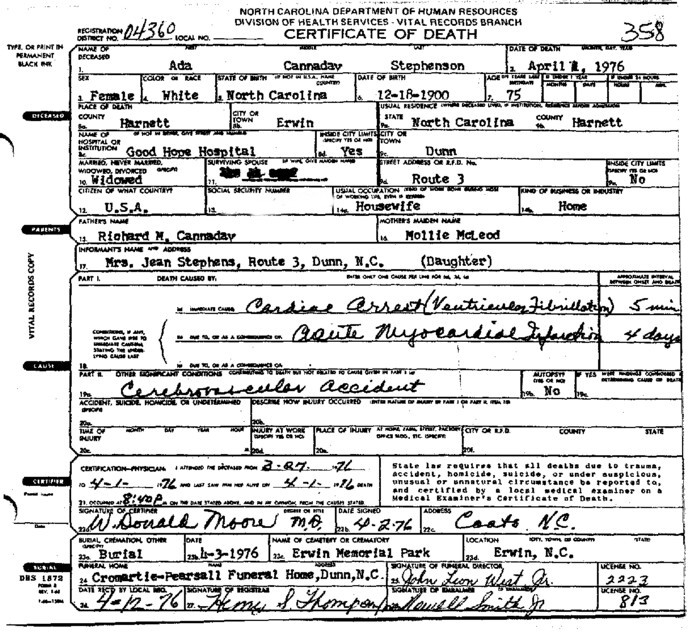 NORTH CAROLINA DEPARTMENT OF HUMAN RESOURCES
DIVISION OF HEALTH SERVICES - VITAL RECORDS BRANCH
CERTIFICATE OF DEATH
REGISTRATION DISTRICT NO. 04360 LOCAL NO. 358
TYPE, OR PRINT IN PERMANENT BLACK INK
NAME OF DECEASED FIRST MIDDLE LAST DATE OF DEATH MONTH, DAY, YEAR
1. Ada Cannaday Stephenson 2. April 1, 1976
SEX COLOR OR RACE STATE OF BIRTH (IF NOT IN U.S.A., NAME COUNTRY) DATE OF BIRTH AGE
3. Female 4. White 5. North Carolina 6. 12-18-1900 7. 75
DECEASED
PLACE OF DEATH USUAL RESIDENCE
COUNTY CITY OR TOWN STATE COUNTY
8a. Harnett 8b. Erwin 9a. North Carolina 9b. Harnett
NAME OF HOSPITAL OR INSTITUTION INSIDE CITY LIMITS CITY OR TOWN
8c. Good Hope Hospital 8d. Yes 9c. Dunn
MARRIED, NEVER MARRIED, WIDOWED, DIVORCED SURVIVING SPOUSE STREET ADDRESS OR R.F.D. No. INSIDE CITY LIMITS
10. Widowed 11. 9d. Route 3 9e. No
CITIZEN OF WHAT COUNTRY? SOCIAL SECURITY NUMBER USUAL OCCUPATION KIND OF BUSINESS OR INDUSTRY
12. U.S.A. 13. 14a. Housewife 14b. Home
PARENTS
FATHER'S NAME MOTHER'S MAIDEN NAME
15. Richard M. Cannaday 16. Mollie McLeod
INFORMANT'S NAME AND ADDRESS
17. Mrs. Jean Stephens, Route 3, Dunn, N.C. (Daughter)
VITAL RECORDS COPY
PART I. DEATH CAUSED BY: ENTER ONLY ONE CAUSE PER LINE APPROXIMATE INTERVAL BETWEEN ONSET AND DEATH
(a) IMMEDIATE CAUSE Cardiac Arrest (Ventricular Fibrillation) 5 min
CONDITIONS, IF ANY, WHICH GAVE RISE TO IMMEDIATE CAUSE, STATING THE UNDERLYING CAUSE LAST
(b) DUE TO, OR AS A CONSEQUENCE OF: Acute Myocardial Infarction 4 days
CAUSE
18. (c) DUE TO, OR AS A CONSEQUENCE OF:
PART II. OTHER SIGNIFICANT CONDITIONS AUTOPSY? (YES OR NO)
19a. Cerebrovascular accident 19b. No 19c.
ACCIDENT, SUICIDE, HOMICIDE, OR UNDETERMINED DESCRIBE HOW INJURY OCCURRED
20a. 20b.
TIME OF INJURY MONTH DAY YEAR HOUR INJURY AT WORK PLACE OF INJURY CITY OR R.F.D. COUNTY STATE
20c. 20d. 20e. 20f.
CERTIFIER
CERTIFICATION-PHYSICIAN: I ATTENDED THE DECEASED FROM 3-27- 1976
TO 4-1- 1976 AND LAST SAW HIM/HER ALIVE ON 4-1- 1976 DEATH
21. OCCURRED AT 8:40P M. ON THE DATE STATED ABOVE, AND IN MY OPINION, FROM THE CAUSES STATED.
State law requires that all deaths due to trauma,
accident, homicide, suicide, or under suspicious,
unusual or unnatural circumstance be reported to,
and certified by a local medical examiner on a
Medical Examiner's Certificate of Death.
SIGNATURE OF CERTIFIER DEGREE OR TITLE DATE SIGNED ADDRESS
22a. W. Donald Moore M.D. 22b. 4-2-76 22c. Coats N.C.
BURIAL, CREMATION, OTHER DATE NAME OF CEMETERY OR CREMATORY LOCATION
23a. Burial 23b. 4-3-1976 23c. Erwin Memorial Park 23d. Erwin, N.C.
BURIAL
FUNERAL HOME NAME ADDRESS SIGNATURE OF FUNERAL DIRECTOR LICENSE NO.
24. Cromartie-Pearsall Funeral Home, Dunn, N.C. 25. John Leon West Jr. 2223
DHS 1872
DATE REC'D BY LOCAL REG. SIGNATURE OF REGISTRAR SIGNATURE OF EMBALMER LICENSE NO.
26. 4-12-76 27. Henry S. Thompson Newell Smith Jr 813